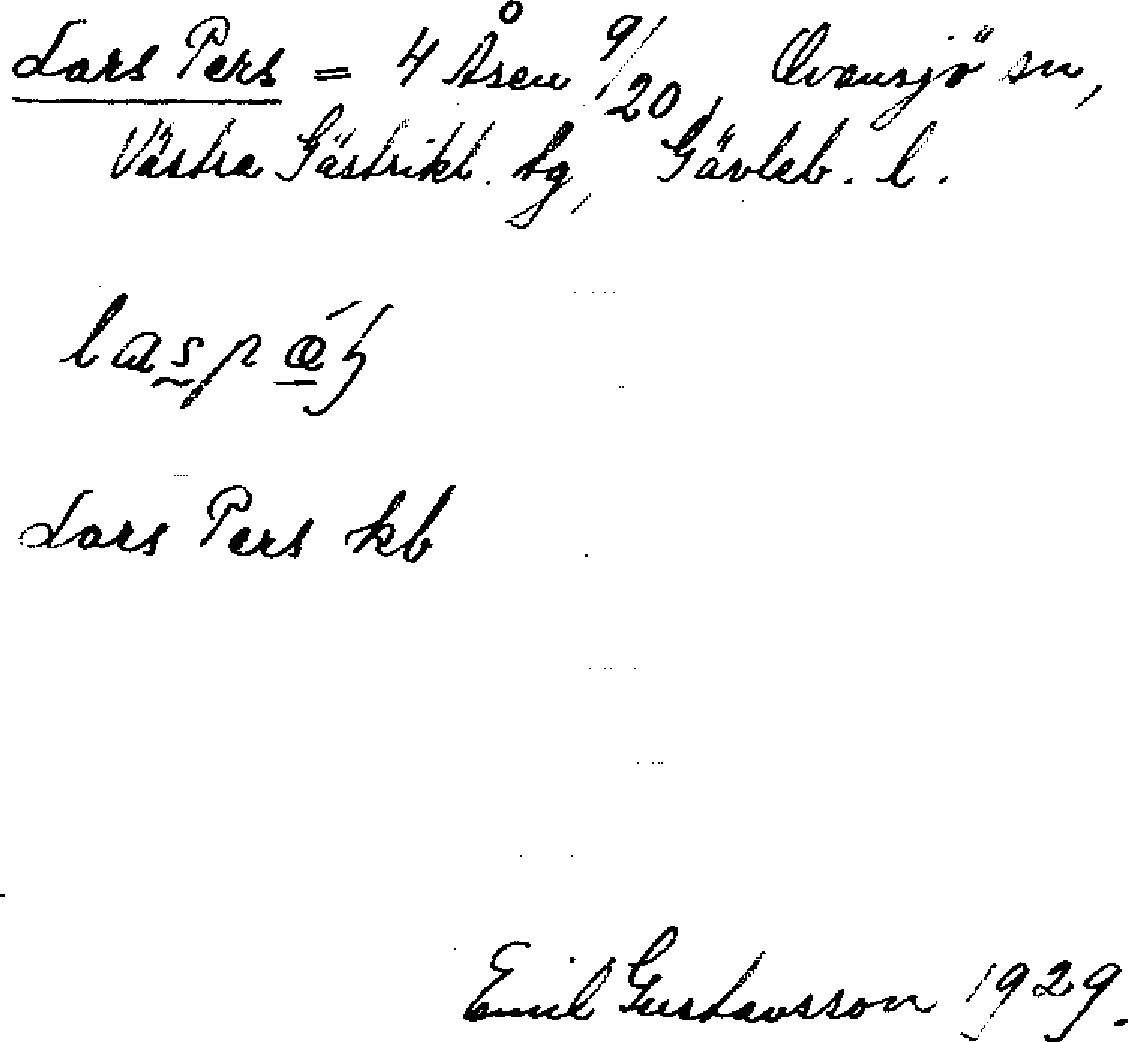 Lars Pers = 4 Åsen 9/20, Ovansjö sn,
Västra Gästrikl. tg, Gävleb. l.
Lars Pers kb
Emil Gustavsson 1929.